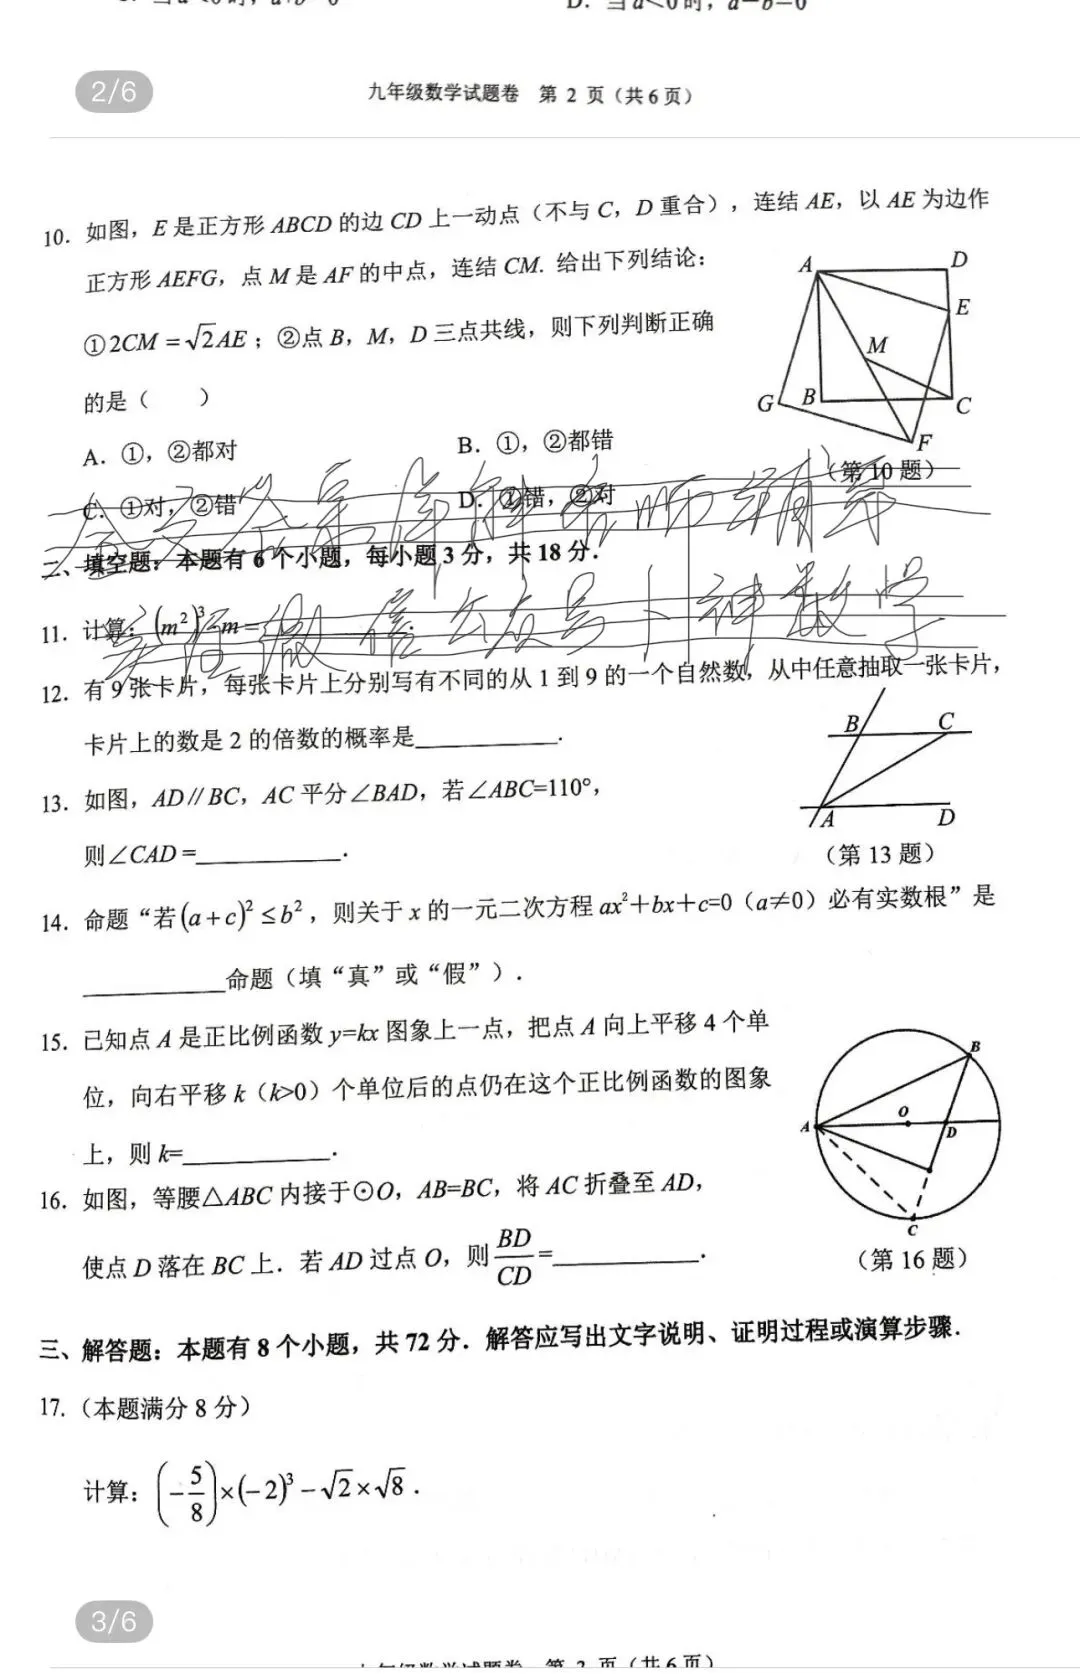 2/6
九年级数学试题卷 第 2 页（共6页）
10．如图，E 是正方形 ABCD 的边 CD 上一动点（不与 C，D 重合），连结 AE，以 AE 为边作
正方形 AEFG，点 M 是 AF 的中点，连结 CM. 给出下列结论：
①2CM =√2AE；②点 B，M，D 三点共线，则下列判断正确
的是（　　）
A D E M G B C F
A．①，②都对　B．①，②都错
（第 10 题）
C．①对，②错　D．①错，②对
二、填空题：本题有 6 个小题，每小题 3 分，共 18 分．
11．计算：(m²)³÷m=________．
12．有 9 张卡片，每张卡片上分别写有不同的从 1 到 9 的一个自然数，从中任意抽取一张卡片，
卡片上的数是 2 的倍数的概率是________．
B C A D
13．如图，AD∥BC，AC 平分∠BAD，若∠ABC=110°，
则∠CAD =________．
（第 13 题）
14．命题“若(a+c)²≤b²，则关于 x 的一元二次方程 ax²+bx+c=0（a≠0）必有实数根”是
________命题（填“真”或“假”）．
15．已知点 A 是正比例函数 y=kx 图象上一点，把点 A 向上平移 4 个单
位，向右平移 k（k>0）个单位后的点仍在这个正比例函数的图象
上，则 k=________．
B O A D C
16．如图，等腰△ABC 内接于⊙O，AB=BC，将 AC 折叠至 AD，
使点 D 落在 BC 上．若 AD 过点 O，则 BD/CD =________．
（第 16 题）
三、解答题：本题有 8 个小题，共 72 分．解答应写出文字说明、证明过程或演算步骤．
17.（本题满分 8 分）
计算：(-5/8)×(-2)³-√2×√8．
3/6